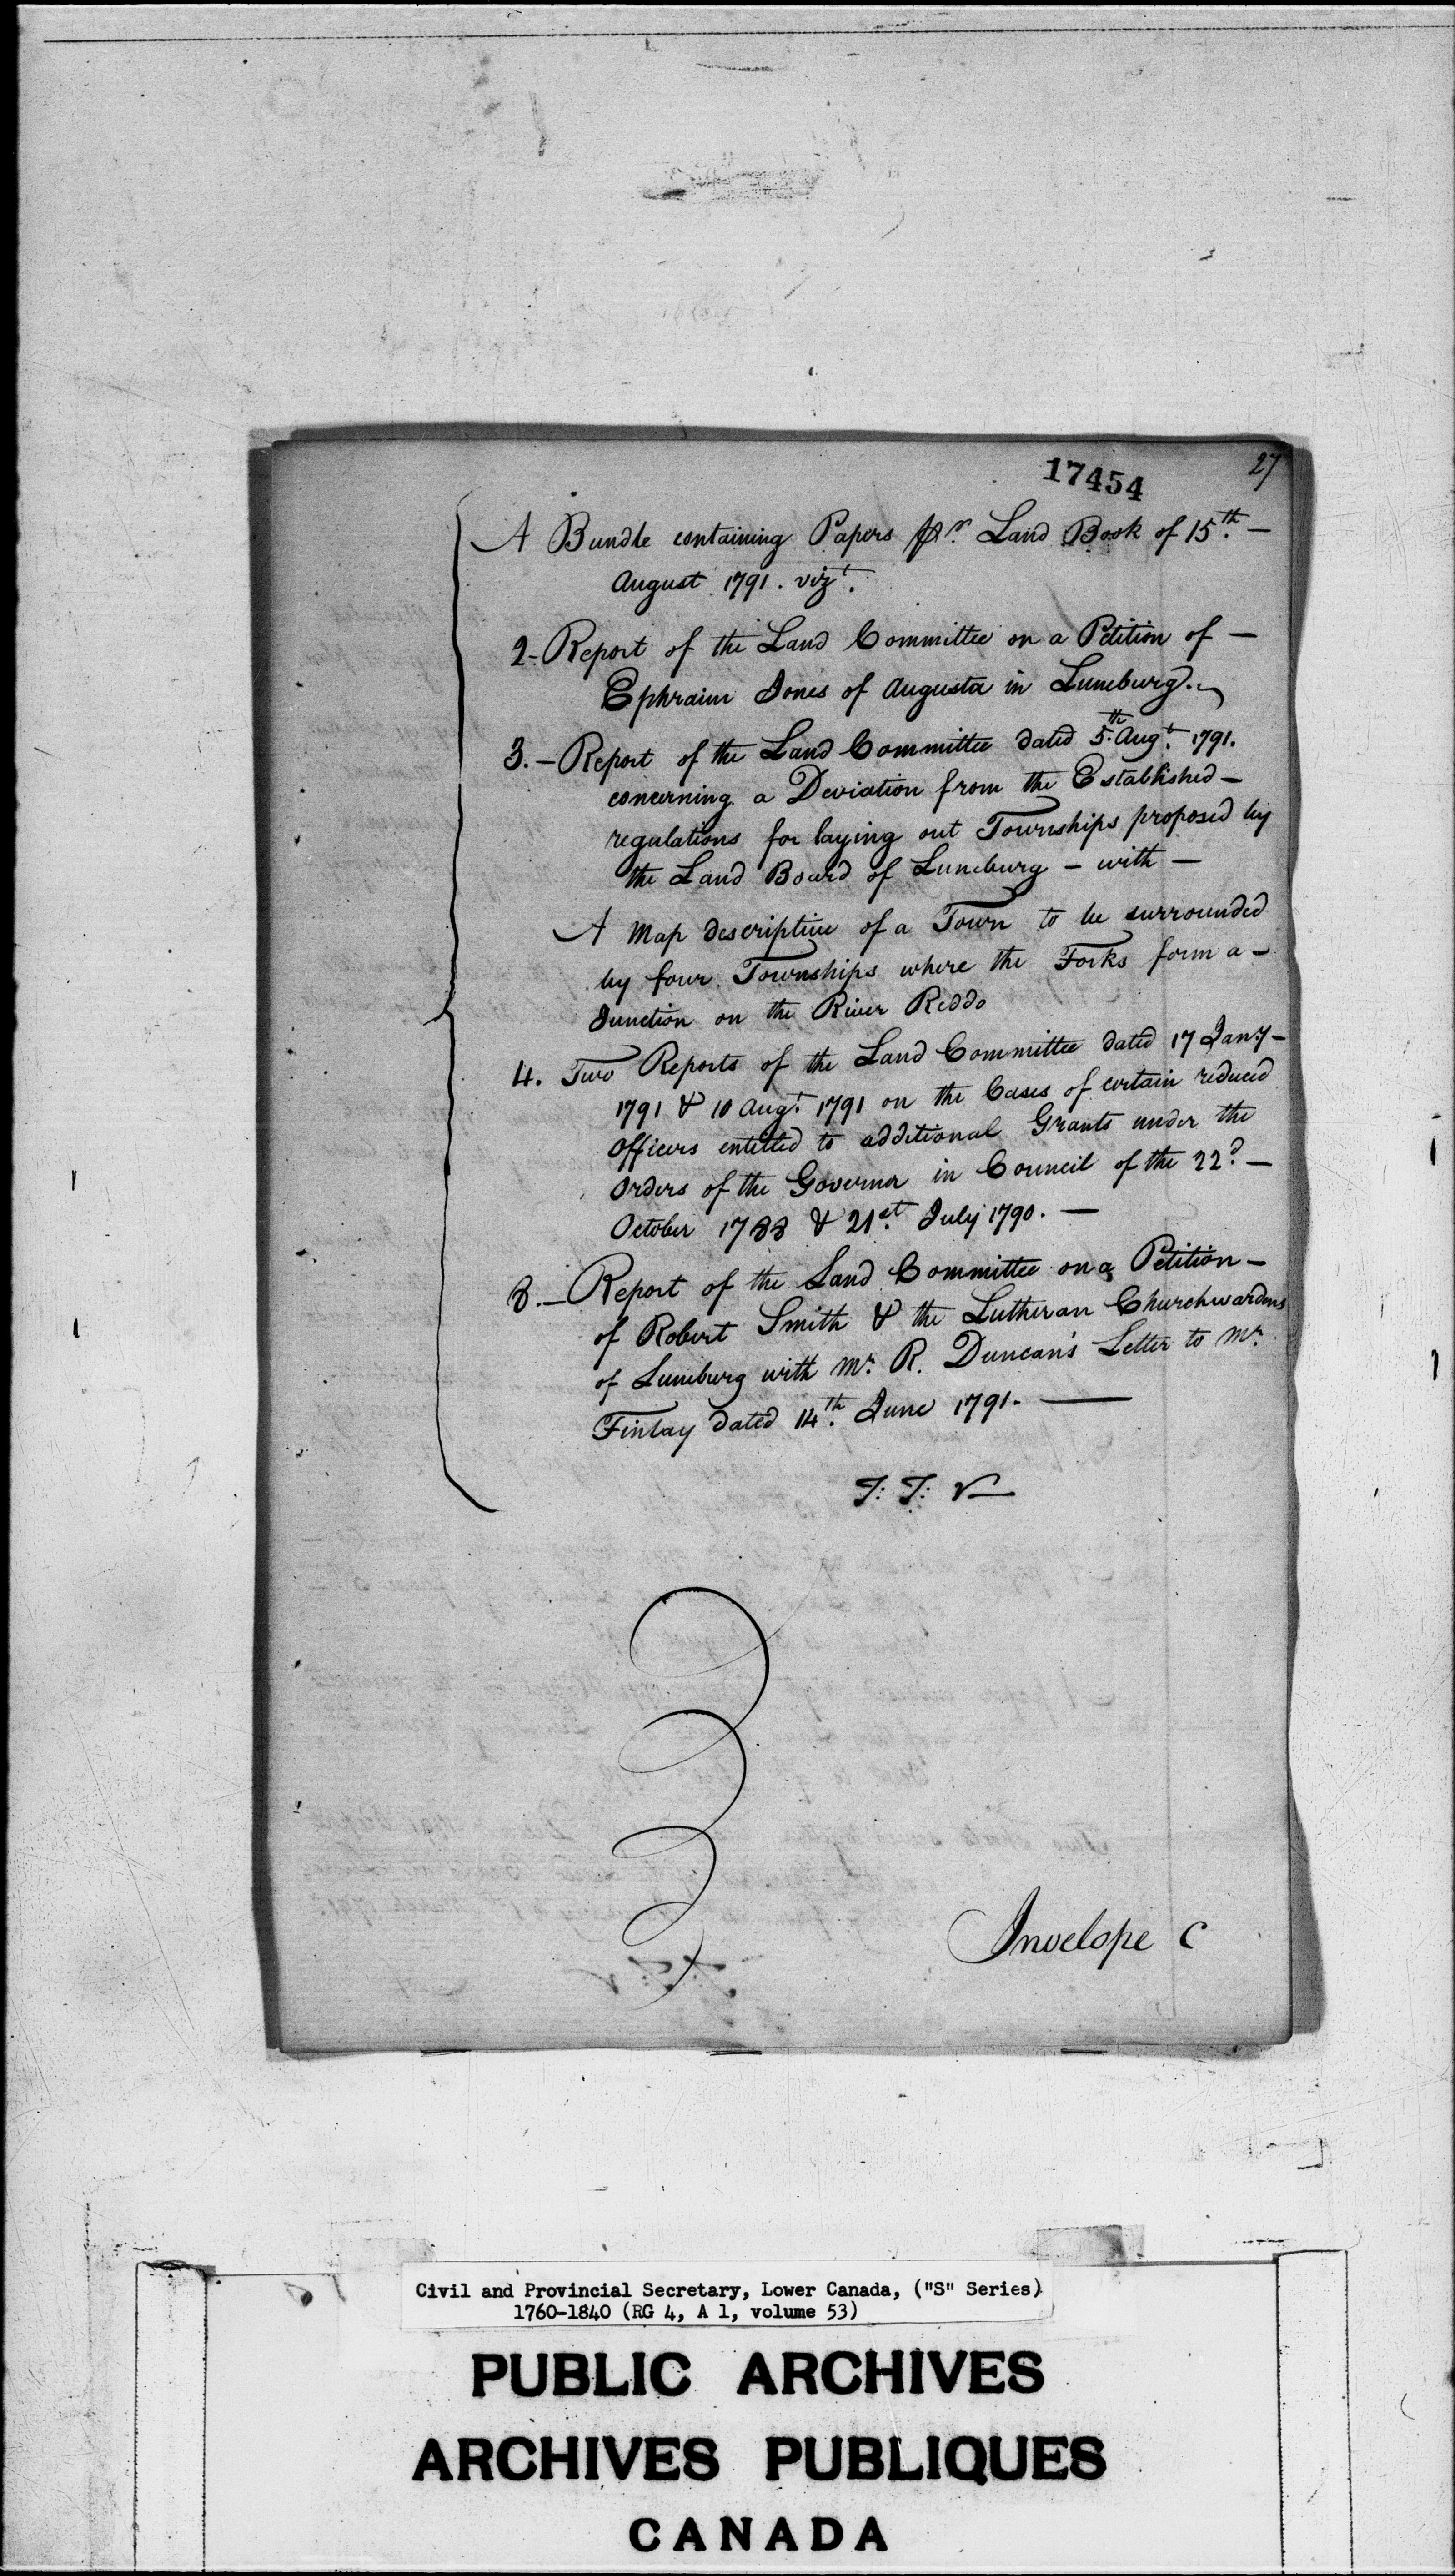 17454
27
A Bundle containing Papers pr. Land Book of 15th. —
August 1791. vizt.
2- Report of the Land Committee on a Petition of —
Ephraim Jones of Augusta in Luneburg.
3. — Report of the Land Committee dated 5th. Augt. 1791.
concerning a Deviation from the Established —
regulations for laying out Townships proposed by
the Land Board of Luneburg — with —
A Map descriptive of a Town to be surrounded
by four Townships where the Forks form a —
Junction on the River Reddo
4. Two Reports of the Land Committee dated 17 Jany —
1791 & 10 Augt. 1791 on the Cases of certain reduced
Officers entitled to additional Grants under the
Orders of the Governor in Council of the 22d. —
October 1788 & 21st. July 1790. —
8. — Report of the Land Committee on a Petition —
of Robert Smith & the Lutheran Churchwardens
of Luneburg with Mr. R. Duncan's Letter to Mr.
Finlay dated 14th. June 1791. —
Invelope C
Civil and Provincial Secretary, Lower Canada, ("S" Series)
1760-1840 (RG 4, A 1, volume 53)
PUBLIC ARCHIVES
ARCHIVES PUBLIQUES
CANADA